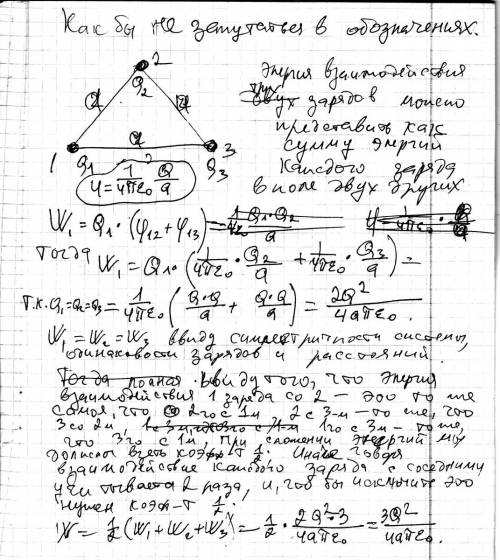 Как бы не запутаться в обозначениях.
2
Q₂
a
a
a
1
3
Q₁
Q₃
φ = 1/4πε₀ Q/a
Энергия взаимодействия
трех зарядов можно
представить как
сумму энергий
каждого заряда
в поле двух других
W₁ = Q₁·(φ₁₂+φ₁₃)
Тогда W₁ = Q₁·(1/4πε₀·Q₂/a + 1/4πε₀·Q₃/a) =
т.к. Q₁=Q₂=Q₃ = 1/4πε₀ (Q·Q/a + Q·Q/a) = 2Q²/4aπε₀.
W₁ = W₂ = W₃ ввиду симметричности системы,
одинаковости зарядов и расстояний.
Ввиду того, что энергия
взаимодействия 1 заряда со 2 – это то же
самое, что 2го с 1м, 2 с 3-м – то же, что
3го со 2м, 1го с 3-м – то же,
что 3го с 1м, при сложении энергий мы
должны взять коэф-т 1/2. Иначе говоря
взаимодействие каждого заряда с соседними
учитывается 2 раза, и, чтобы исключить это
нужен коэф-т 1/2.
W = 1/2 (W₁ + W₂ + W₃) = 1/2 · 2Q²·3/4aπε₀ = 3Q²/4aπε₀.